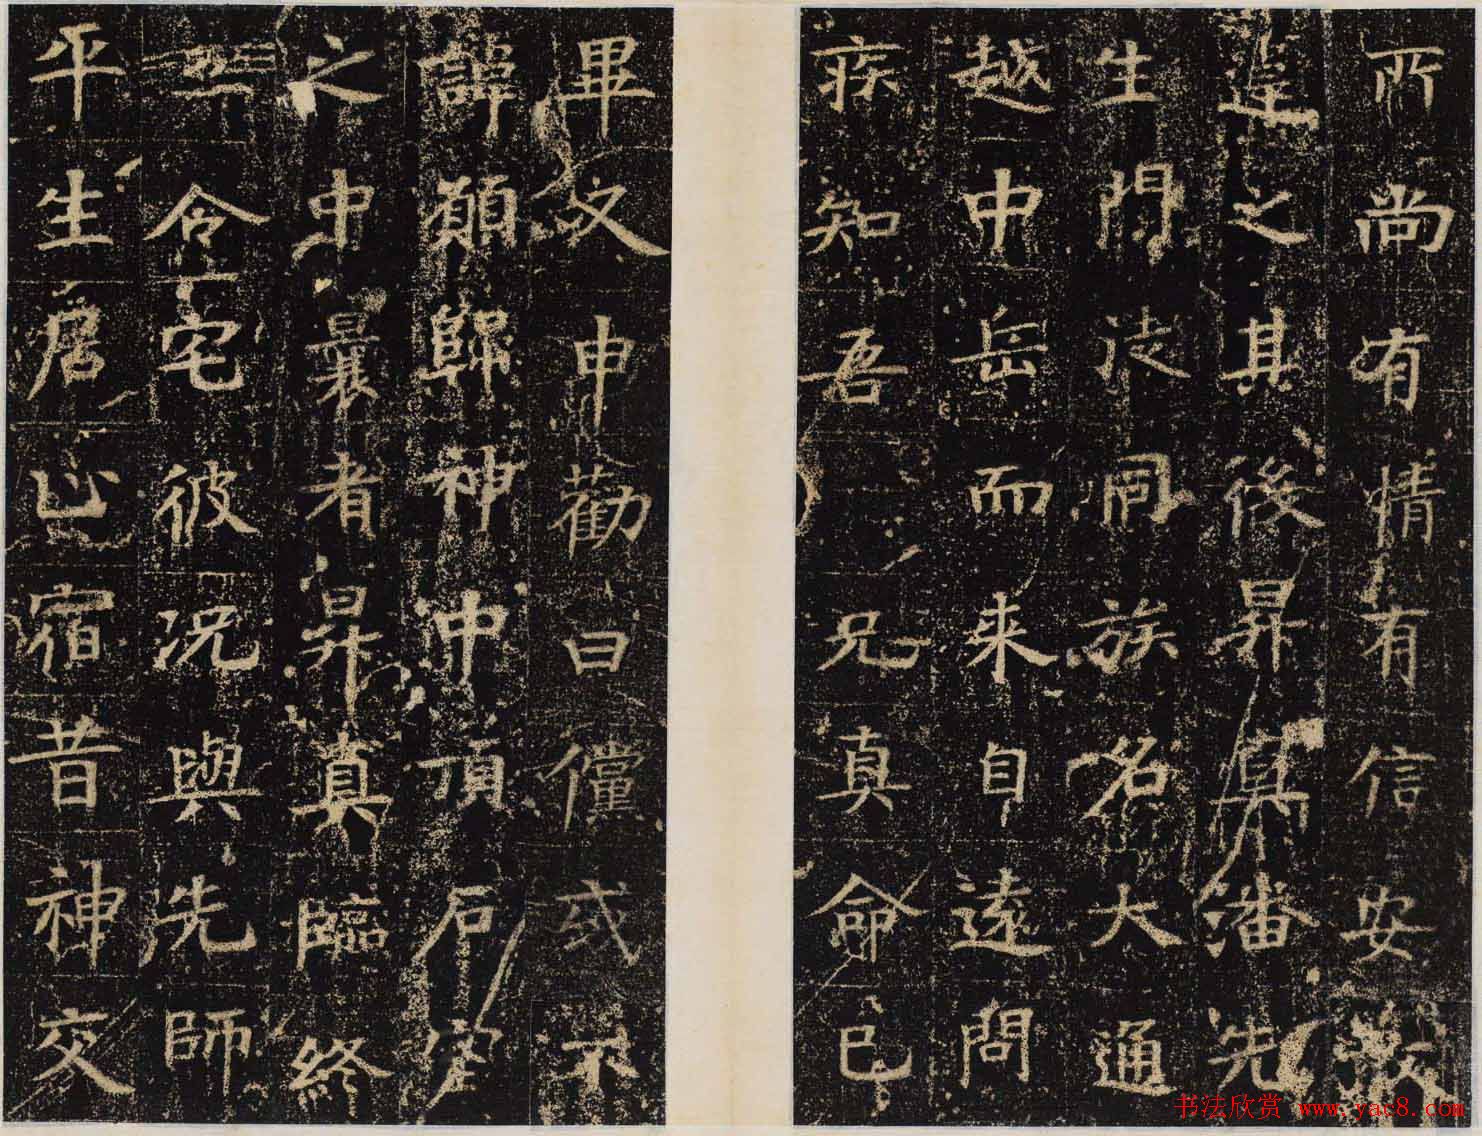 所尚有情有信安敢
違之其後昇真潘先
生門徒同族名大通
越中岳而来自遠問
疾知吾兄真命已
畢又申勸曰儻或不
諱願歸神中頂石室
之中曩者昇真臨終
令宅彼况與先師
平生居止宿昔神交
书法欣赏 www.yac8.com